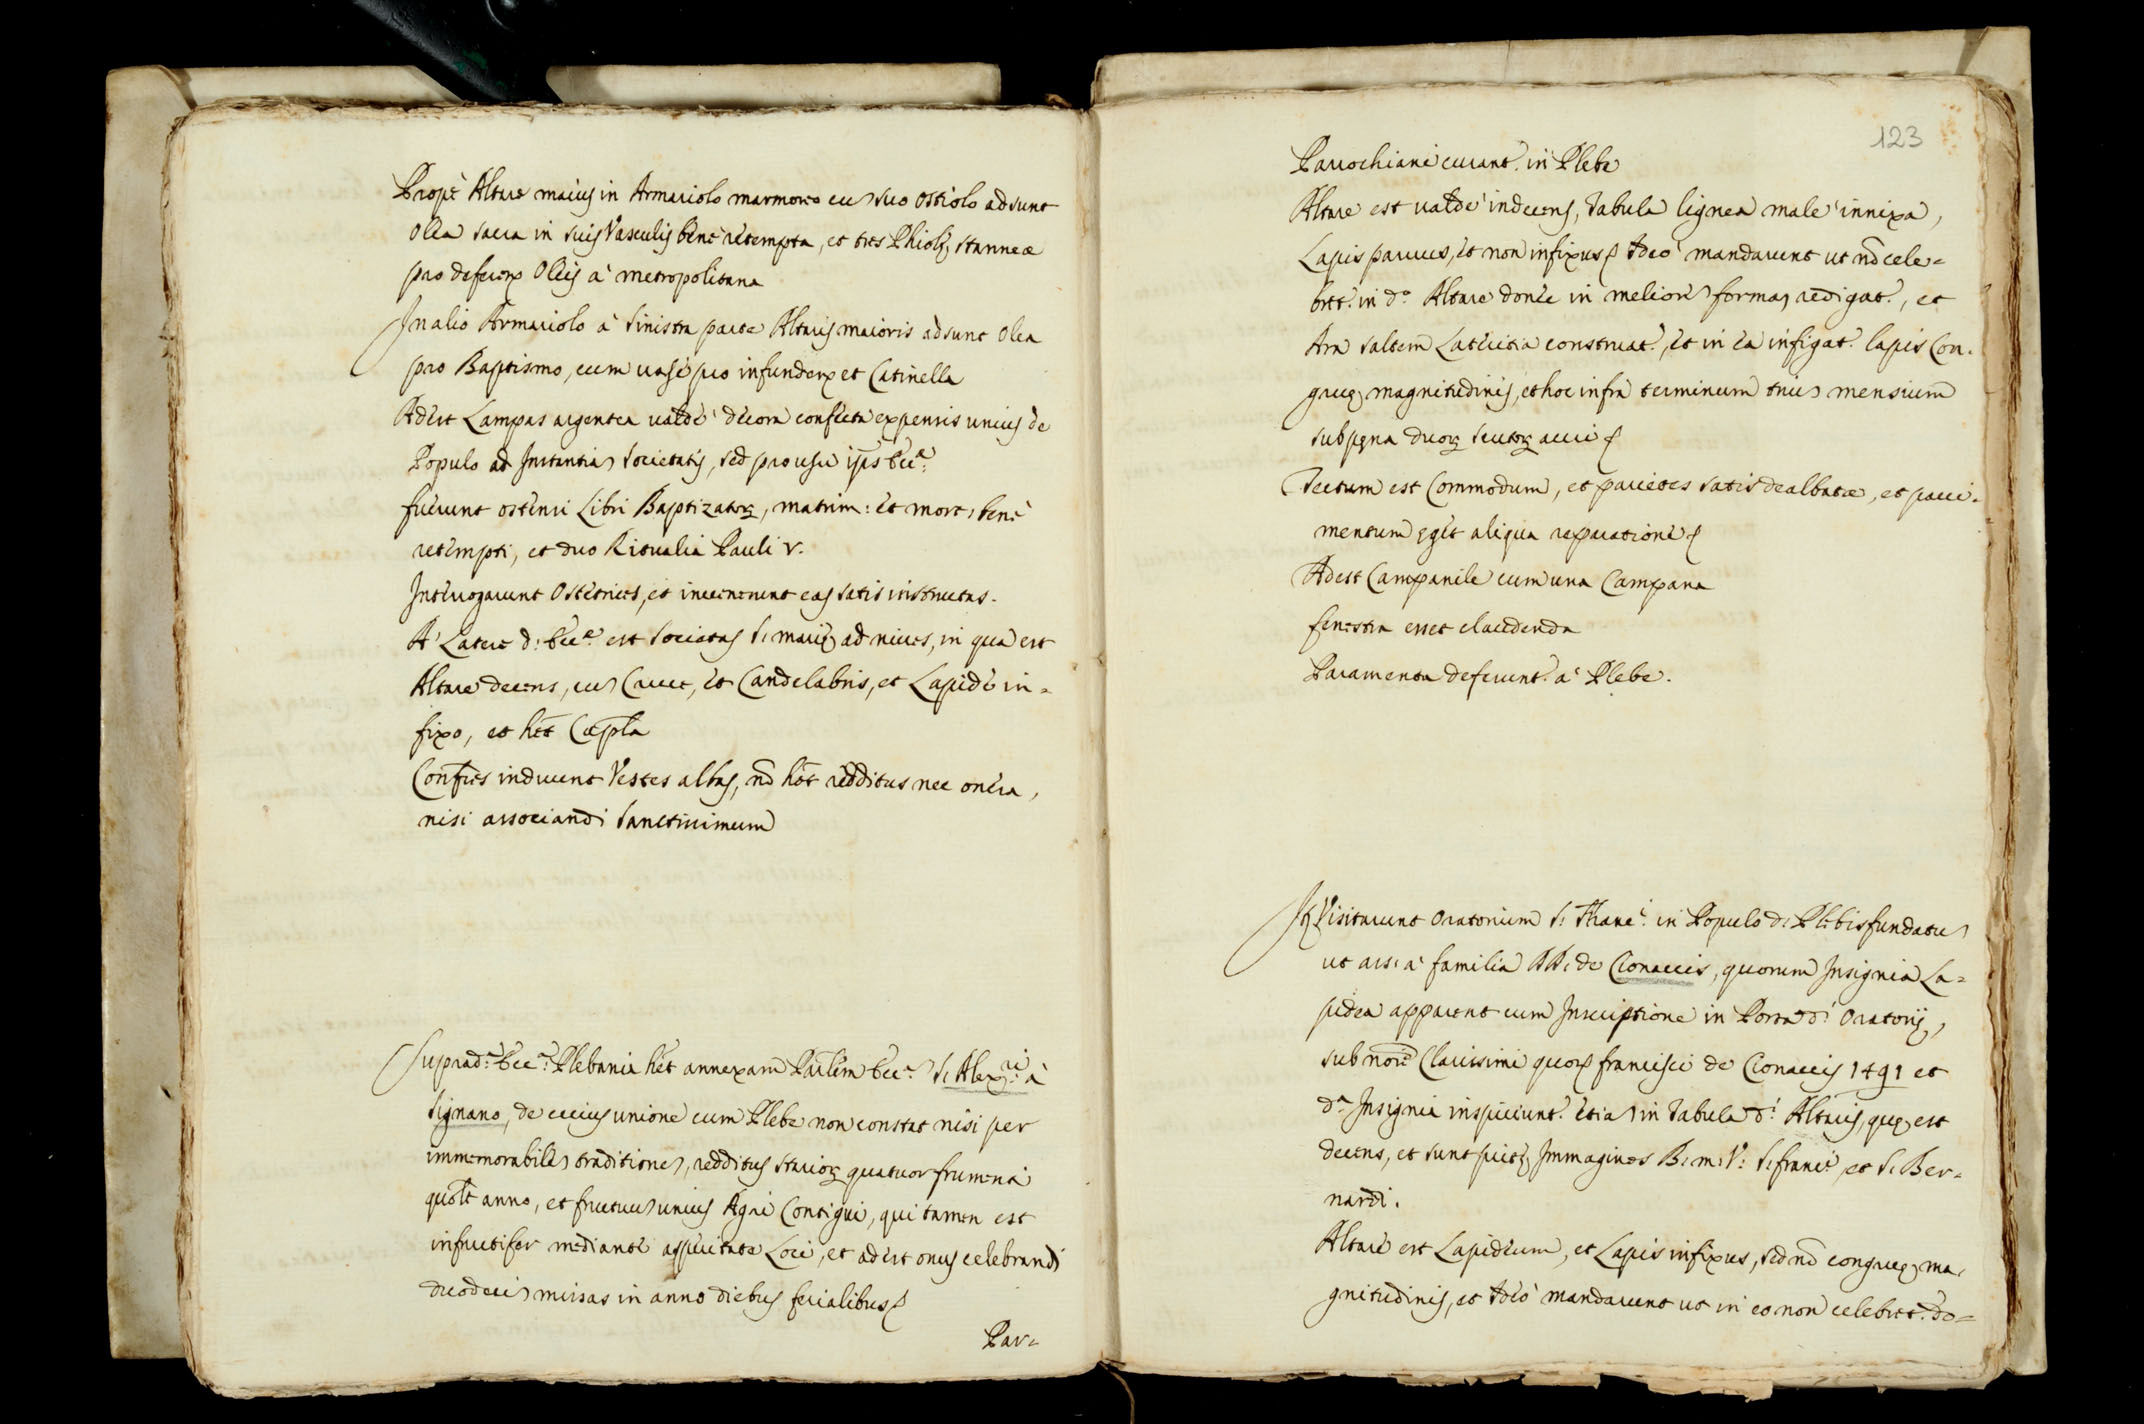 Propè Altare maius in Armariolo marmoreo cu suo ostiolo adsunt
Olea sacra in suis Vasculis bene retempta, et tres Phiolę stanneæ
pro deferen Oleis à metropolitana
In alio Armariolo à sinistra parte Altaris maioris adsunt Olea
pro Baptismo, cum vase pro infunden et Catinella
Adest Lampas argentea valdè decora confecta expensis unius de
Populo ad Instantia Societatis, sed pro usu ipˢ Eccᵃ:
fuerunt ostensi Libri Baptizator, matrim: et mort, benè
retempti, et duo Ritualia Pauli V.
Interrogarunt Ostetrices, et invenerunt eas satis instructas.
A' Latere d: Eccᵉ est Societas S: Marię ad nives, in qua est
Altare decens, cu Cruce, et Candelabris, et Lapide in=
fixo, et het Cap̄la
Conf̄res induunt Vestes albas, nō hēt redditus nec onera,
nisi associandi Sanctissimum
Supradᵃ: Eccᵃ: Plebania het annexam Par̄lem Eccᵃ: S: Alexʳⁱ: à
Signano, de cuius unione cum Plebe non constat nisi per
immemorabile traditione, redditus starior quatuor frumenti
quol̄t anno, et fructuu unius Agri Contigui, qui tamen est
infructifer mediante asperitate Loci, et adest onus celebrandi
duodeci missas in anno diebus ferialibus
Par=
123
Parrochiani curant. in Plebe
Altare est valdè indecens, Tabula lignea male innixa,
Lapis parvus, et non infixus Ideò mandarunt ut nō cele=
bret. in dᵒ Altare donec in meliore forma redigat., et
Ara saltem Lateritia construat., et in ea infigat. lapis Con=
gruę magnitudinis, et hoc infra terminum triu mensium
sub pęna duor scutor auri
Tectum est Commodum, et parietes satis dealbatæ, et pavi=
mentum eget aliqua reparatione
Adest Campanile cum una Campana
fenestra esset claudenda
Paramenta deferunt. à Plebe.
It Visitarunt Oratorium S: Franᶜ: in Populo d: Plebis fundatu
ut ass: à familia DD: de Clonaccis, quorum Insignia La=
pidea apparent cum Inscriptione in Porta dⁱ Oratorij,
sub nōie Clarissimi quor francisci de Clonaccis 1491 et
dᵃ Insignia inspiciunt. etia in Tabula dⁱ Altaris, quę est
decens, et sunt pictę Immagines B: m: V: S: franᶜⁱ et S: Ber=
nardi.
Altare est Lapideum, et Lapis infixus, sed nō congruę ma=
gnitudinis, et Ideò mandarunt ut in eo non celebret. do=